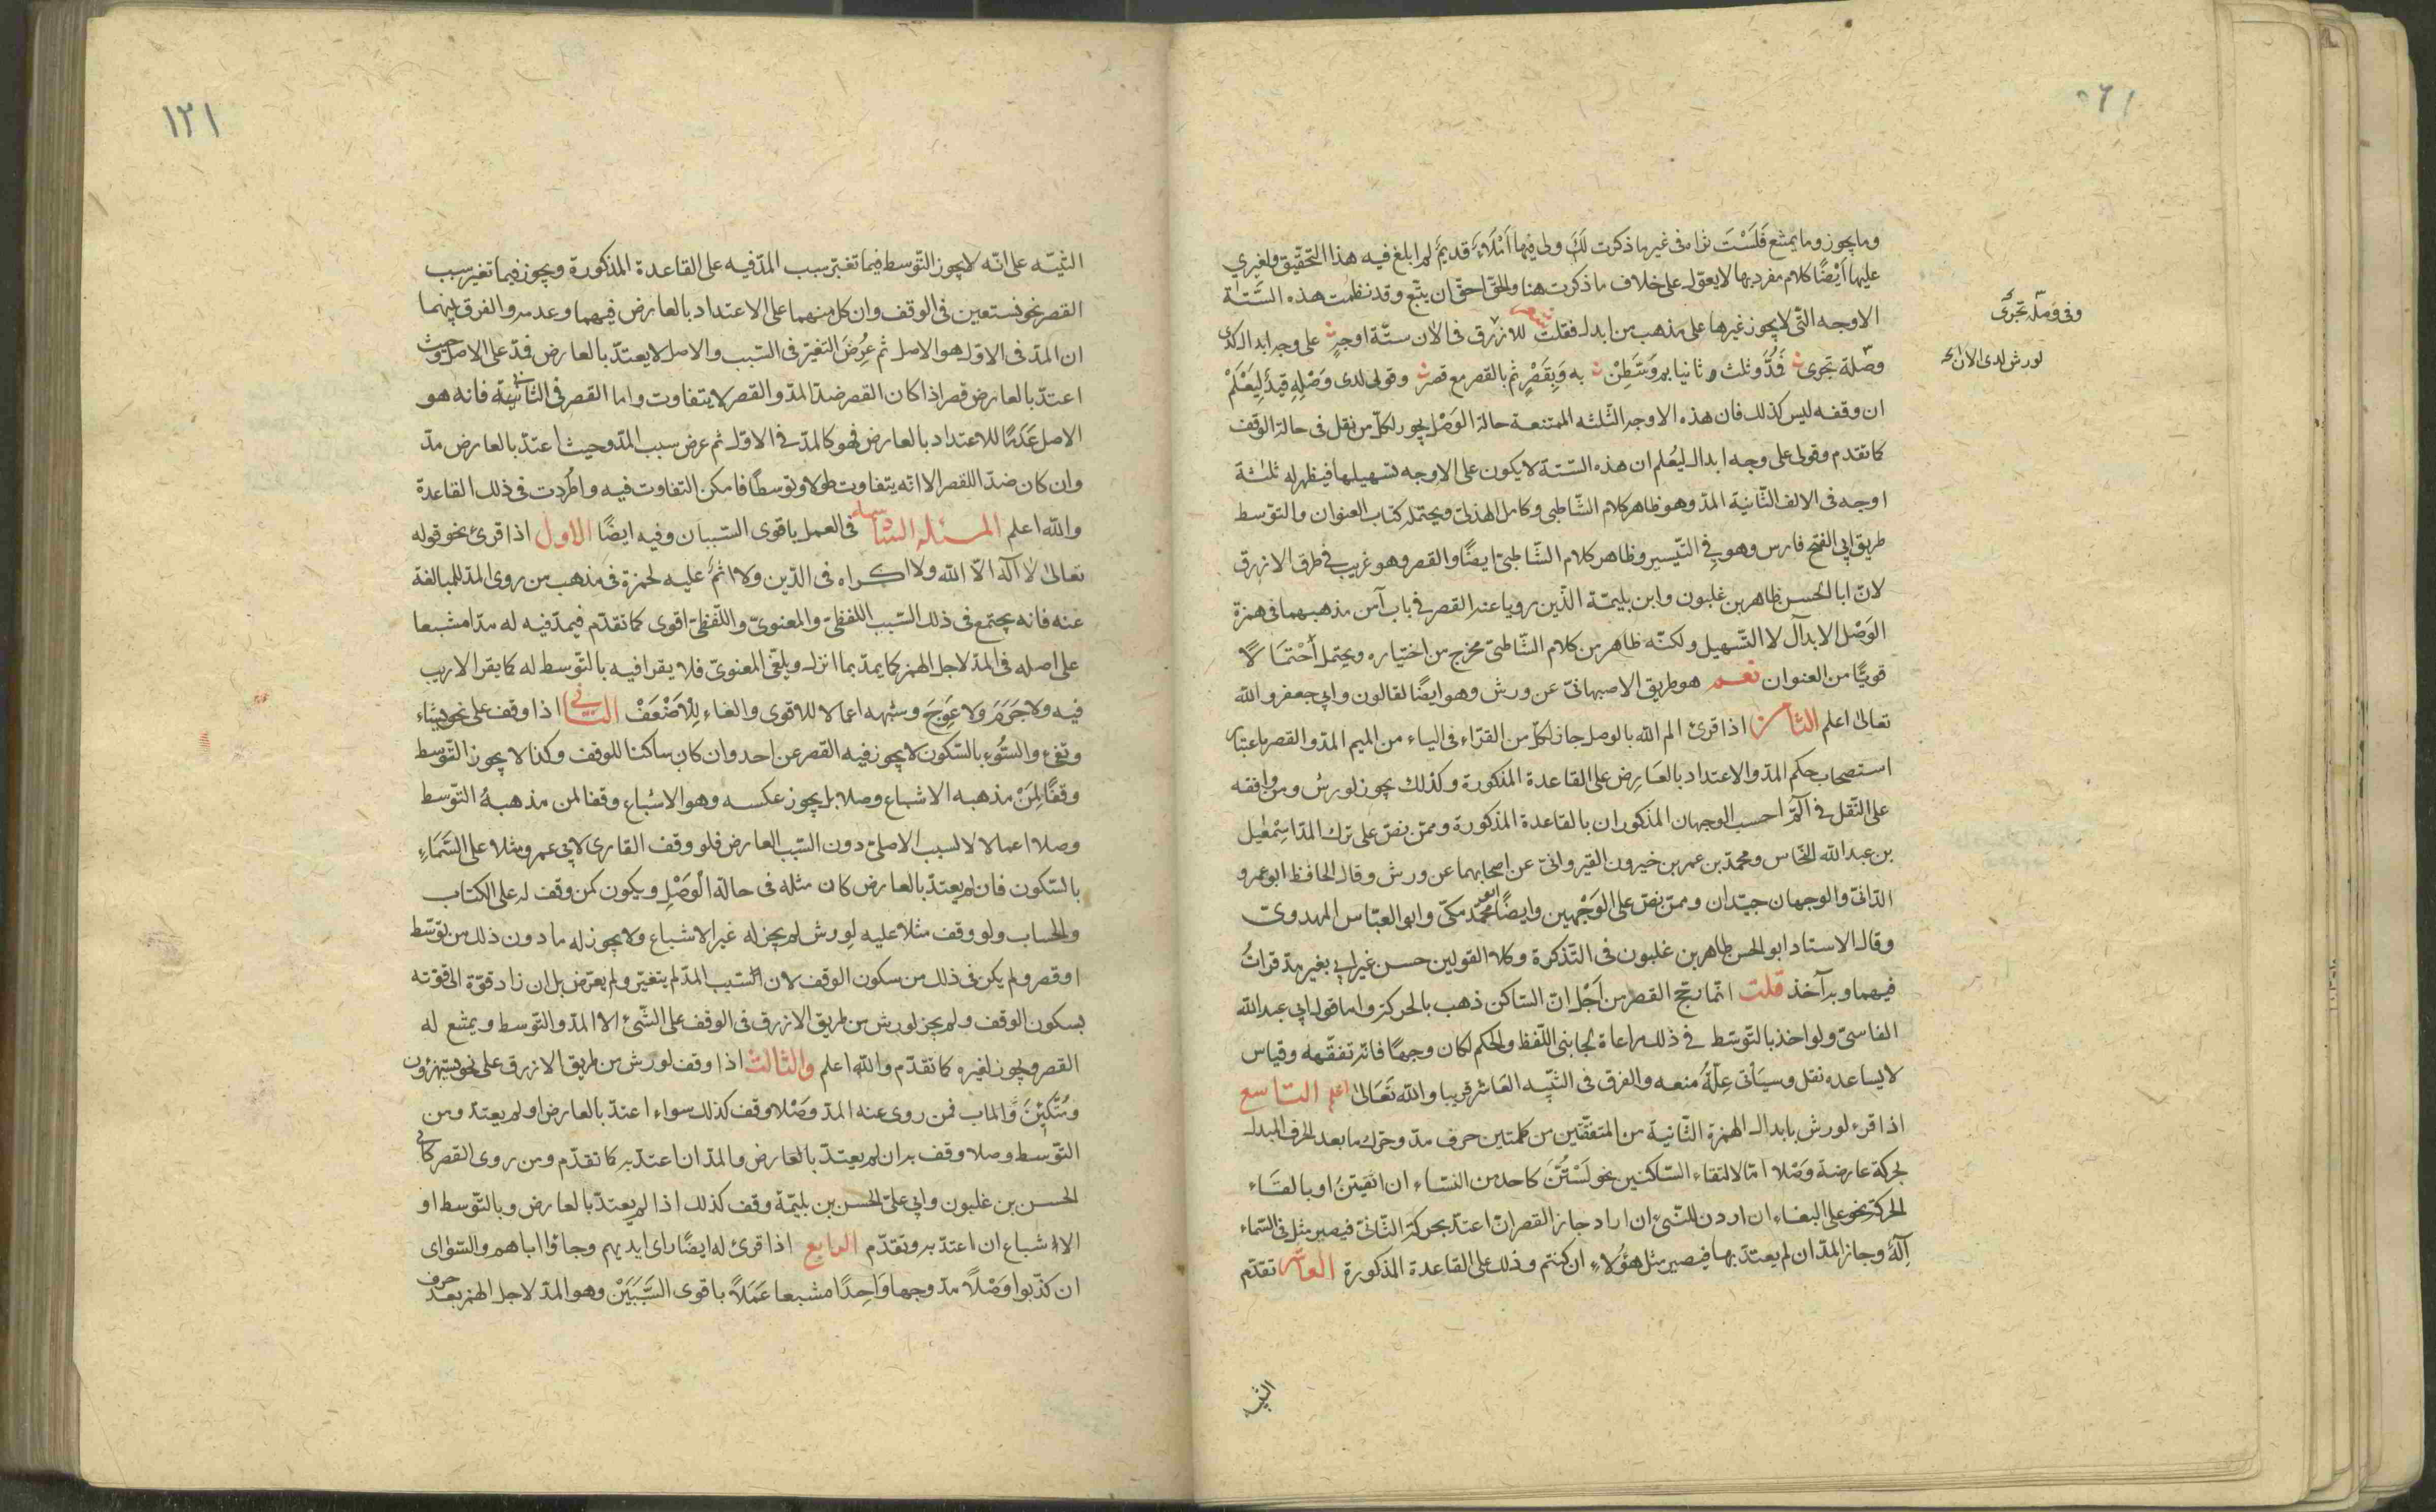 وما يجوز وما يمتنع فَلَسْتَ تراه فى غير ما ذكرت لَكَ ولى فيها اَمْلَاءٌ قديمٌ لم ابلغ فيه هذا التحقيق ولغيرى
عليها اَيْضًا كلام مفرد بها لا يعوّل على خلاف ما ذكرت هنا والحق احق ان يتّبع وقد نظمت هذه السّتّة
الاوجه التّى لا يجوز غيرها على مذهب من ابدل فقلت للازرق فى الآن ستّة اوجهٍ على وجه ابدال لدى
وصله تجرى فَمُدَّ وثلث ثانيا ثم وَسِّطَنْ به وَبِقَصْرٍ ثم بالقصر مع قصر وقولى لدى وَصْلِهِ قيدٌ لِيَعْلَمَ
ان وقفه ليس كذلك فان هذه الاوجه الثّلثه الممتنعة حالة الوَصْل يجوز لكلّ من نقل فى حالة الوقف
كما تقدم وقولى على وجه ابدال ليُعلم ان هذه السّتة لا يكون على الاوجه تسهيلها فيظهر له ثلثة
اوجه فى الالف الثّانية المدّ وهو ظاهر كلام الشّاطبى وكامل الهذلىّ ويحتمله كتاب العنوان والتوسط
طريق ابى الفتح فارس وهو فى التّيسير وظاهر كلام الشّاطبىّ ايضًا والقصر وهو غريب فى طرق الازرق
لانّ ابا الحسن طاهر بن غلبون وابن بليمّة الذّين رويا عنه القصر فى باب آمن مذهبهما فى همزة
الوَصْل الابدال لا التّسهيل ولكنّه ظاهر من كلام الشّاطبىّ مخرج من اختياره ويحتمل اُحْتمَالًا
قويًّا من العنوان نعم هو طريق الاصبهانىّ عن ورش وهو ايضًا لقالون وابى جعفر والله
تعالى اعلم الثامن اذا قرئ الم الله بالوصل جاز لكلّ من القرّاء فى الياء من الميم المدّ والقصر باعتبار
استصحاب حكم المدّ والاعتداد بالعَارِض على القاعدة المذكورة وكذلك يجوز لورش ومن وافقه
على النّقل فى آلمّ احسب الوجهان المذكوران بالقاعدة المذكورة وممّن نصّ على ترك المدّ اسمٰعيل
بن عبد الله النحّاس ومحمّد بن عمر بن خيرون القيروانىّ عن اصحابهما عن ورش وقال الحافظ ابو عمرو
الدّانىّ والوجهان جيّدان وممّن نصّ على الوَجْهين وايضًا ابو محمّد مكىّ وابو العبّاس المهدوىّ
وقال الاستاد ابو الحسن طاهر بن غلبون فى التّذكرة وكلا القولين حسن غير انى بغير مدّ قراتُ
فيهما وبه آخذ قلت انّما رجّح القصر من اَجْل انّ السّاكن ذهب بالحركة واما قول ابى عبد الله
الفاسىّ ولو اخذ بالتّوسّط فى ذلك مراعاة لجانبى اللّفظ والحكم لكان وجهًا فانّه تفقّه وقياس
لا يساعده نقل وسيَأتى عِلّةُ منعه والفرق فى التّنبيه العَاشر قريبا والله تَعَالىٰ اعلم التاسع
اذا قرء لورش بابدال الهمزة الثّانية من المتفقتين من كلمتين حرف مدّ وحرّك ما بعد الحرف المبدل
بحركة عارضة وَصْلا امّا لالتقاء السّاكنين نحو لَسْتُنَّ كاحد من النسّاء ان اتّقيتنّ او بالقاء
الحركة نحو على البغاء ان اردن للنّبىّ ان اراد جاز القصر ان اعتدّ بحركة الثّانىّ فيصير مثل فى السّماء
اِلٰهٌ وجاز المدّ ان لم يعتدّ بها فيصير مثل هٰؤلاء ان كنتم وذلك على القاعدة المذكورة العاشر تقدّم
وفى وَصْله تَجرى
لورش لدى الان
التنبيه
١٢١
التنبيه على انّه لا يجوز التّوسط فيما تغير سبب المدّ فيه على القاعدة المذكورة ويجوز فيما تغير سبب
القصر نحو نستعين فى الوقف وان كل منهما على الاعتداد بالعارض فيهما وعدمه والفرق بينهما
ان المدّ فى الاول هو الاصل ثم عرض التغيّر فى السّبب والاصل لا يعتدّ بالعارض فمدّ على الاصل وحيث
اعتدّ بالعارض قصر اذا كان القصر ضدّ المدّ والقصر لا يتفاوت واما القصر فى الثّانية فانه هو
الاصل عَدَمًا للاعتداد بالعارض فهو كالمدّ فى الاوّل ثم عرض سبب المدّ وحيث اعتدّ بالعارض مدّ
وان كان ضدّا للقصر الّا انّه يتفاوت طولا وتوسّطًا فامكن التفاوت فيه واطّردت فى ذلك القاعدة
والله اعلم المسئلة السّادسة فى العمل باقوى السّببان وفيه ايضًا الاول اذا قرئ نحو قوله
تعالى لا آله الّا الله ولا اكراه فى الدّين ولا اثمَ عليه لحمزة فى مذهب من روى المدّ للمبالغة
عنه فانه يجتمع فى ذلك السّبب اللفظىّ والمعنوىّ واللّفظىّ اقوى كما تقدّم فيمدّ فيه له مدّا مشبعا
على اصله فى المدّ لاجل الهمز كما يمدّ بما انزل ويلغى المعنوىّ فلا يقرا فيه بالتّوسط له كما يقرا لاريب
فيه ولا جَرَمَ ولا عِوَجَ وشبهه اعمالا للاقوى والغاء لِلْاَضْعَفْ الثّانى اذا وقف على نحو يشاء
وتفئ والسّوءِ بالسّكون لا يجوز فيه القصر عن احد وان كان ساكنا للوقف وكذا لا يجوز التّوسط
وقفًا لِمَنْ مذهبه الاشباع وصلا بل يجوز عكسه وهو الاشباع وقفا لمن مذهبهُ التّوسط
وصلا اعمالا لالسبب الاصلىّ دون السّبب العارض فلو وقف القارى لابى عمرو مثلا على السَّمَاءِ
بالسّكون فان لم يعتدّ بالعارض كان مثله فى حالة الْوَصْلِ ويكون كمن وقف له على الكتاب
والحساب ولو وقف مثلا عليه لِورش لم يجز له غير الاشباع ولا يجوز له ما دون ذلك من توسّط
او قصر ولم يكن فى ذلك من سكون الوقف لان السّبب المدّ لم يتغيّر ولم يعرّض بل ان زاد قوّة الى قوته
بسكون الوقف ولم يجز لورش من طريق الازرق فى الوقف على الشّىْ الا المدّ والتّوسط ويمتنع له
القصر ويجوز لغيره كما تقدّم والله اعلم والثالث اذا وقف لورش من طريق الازرق على نحو يستهزؤن
ومُتَّكِيْنَ وَالماب فمن روى عنه المدّ وَصْلا وقف كذلك سواء اعتدّ بالعارض او لم يعتدّ ومن
التّوسط وصلا وقف به ان لم يعتدّ بالعارض والمدّ ان اعتدّ به كما تقدّم ومن روى القصر كابى
الحسن بن غلبون وابى علىّ الحسن بن بليّمة وقف كذلك اذا لم يعتدّ بالعارض وبالتّوسط او
الاشباع ان اعتدّ به وتقدّم الرابع اذا قرئ له ايضًا راى ايديهم وجاؤا اباهم والسّوٰاى
ان كذّبوا وَصْلاً مدّ وجها وَاحِدًا مشبعا عَمَلاً باقوى السَّبَبَيْنْ وهو المدّ لاجل الهمز بعد حرف